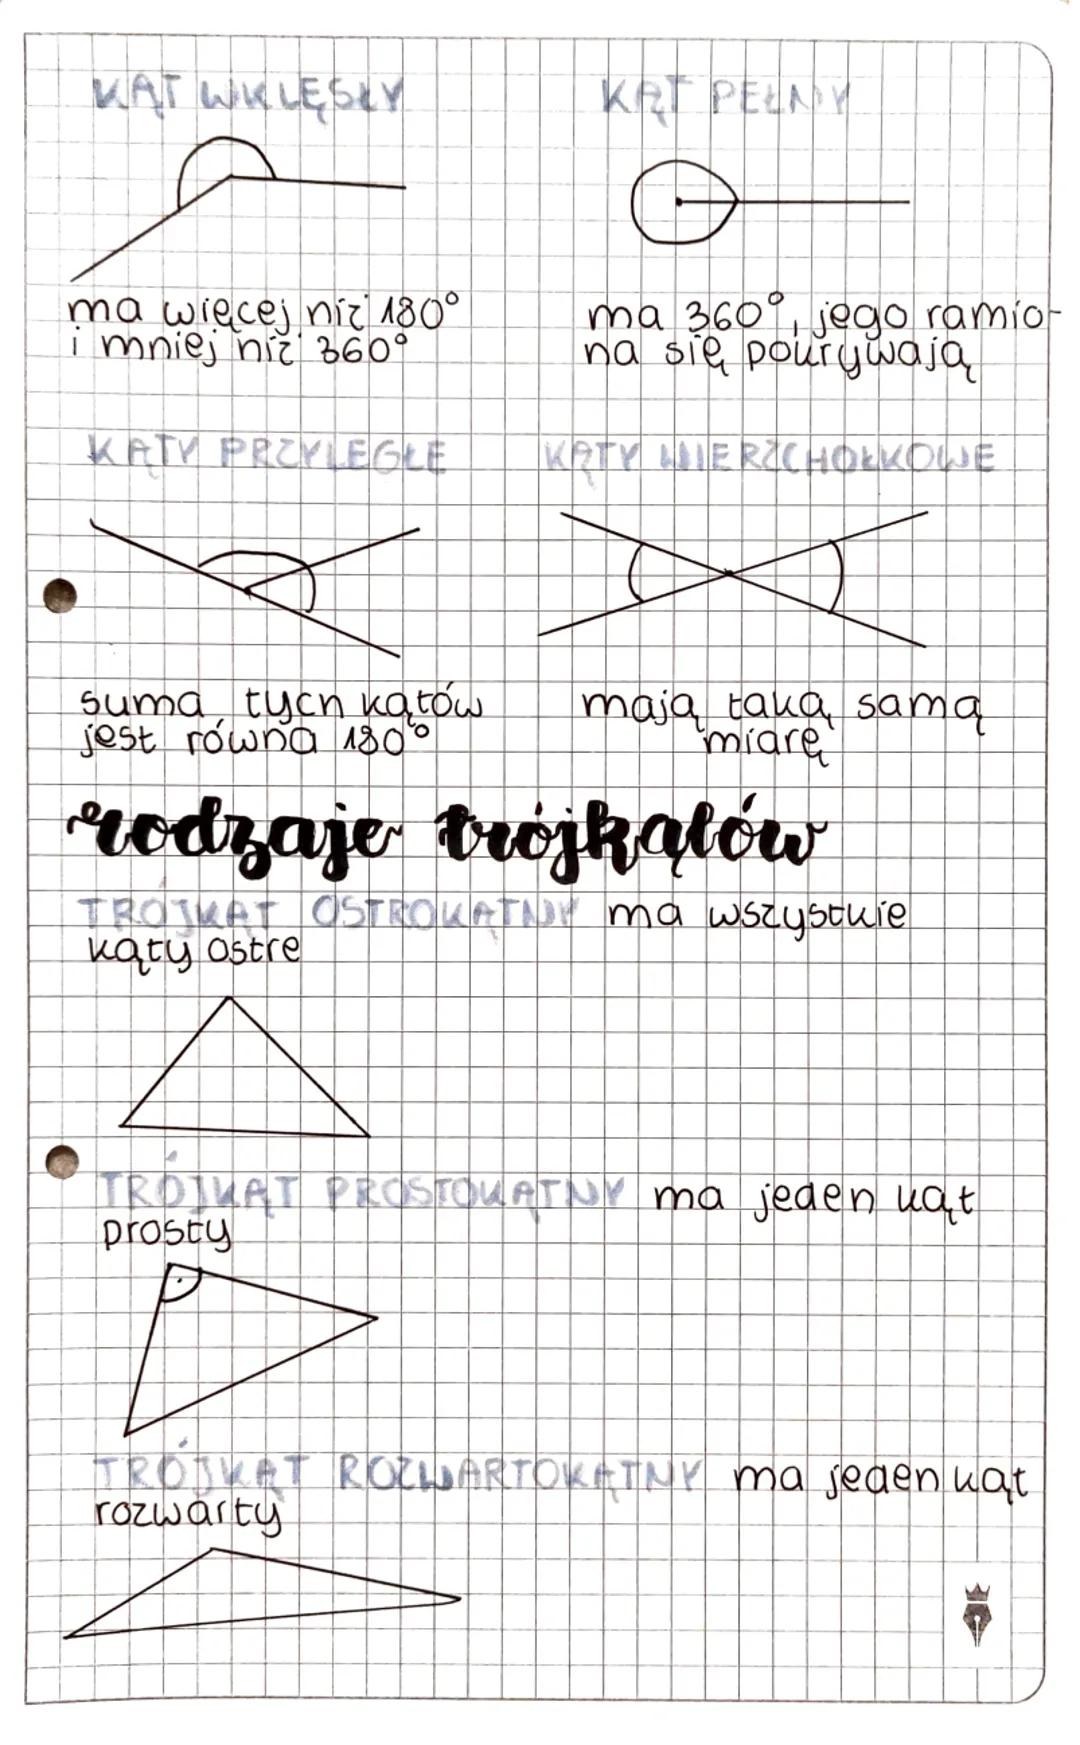 KĄT WKLĘSŁY
ma więcej niż 180°
i mniej niż 360°
KĄT PEŁNY
ma 360°, jego ramio-
na się pokrywają
KĄTY PRZYLEGŁE
suma tych kątów
jest równa 180°
KĄTY WIERZCHOŁKOWE
mają taką samą
miarę
rodzaje trójkątów
TRÓJKĄT OSTROKĄTNY ma wszystkie
kąty ostre
TRÓJKĄT PROSTOKĄTNY ma jeden kąt
prosty
TRÓJKĄT ROZWARTOKĄTNY ma jeden kąt
rozwarty